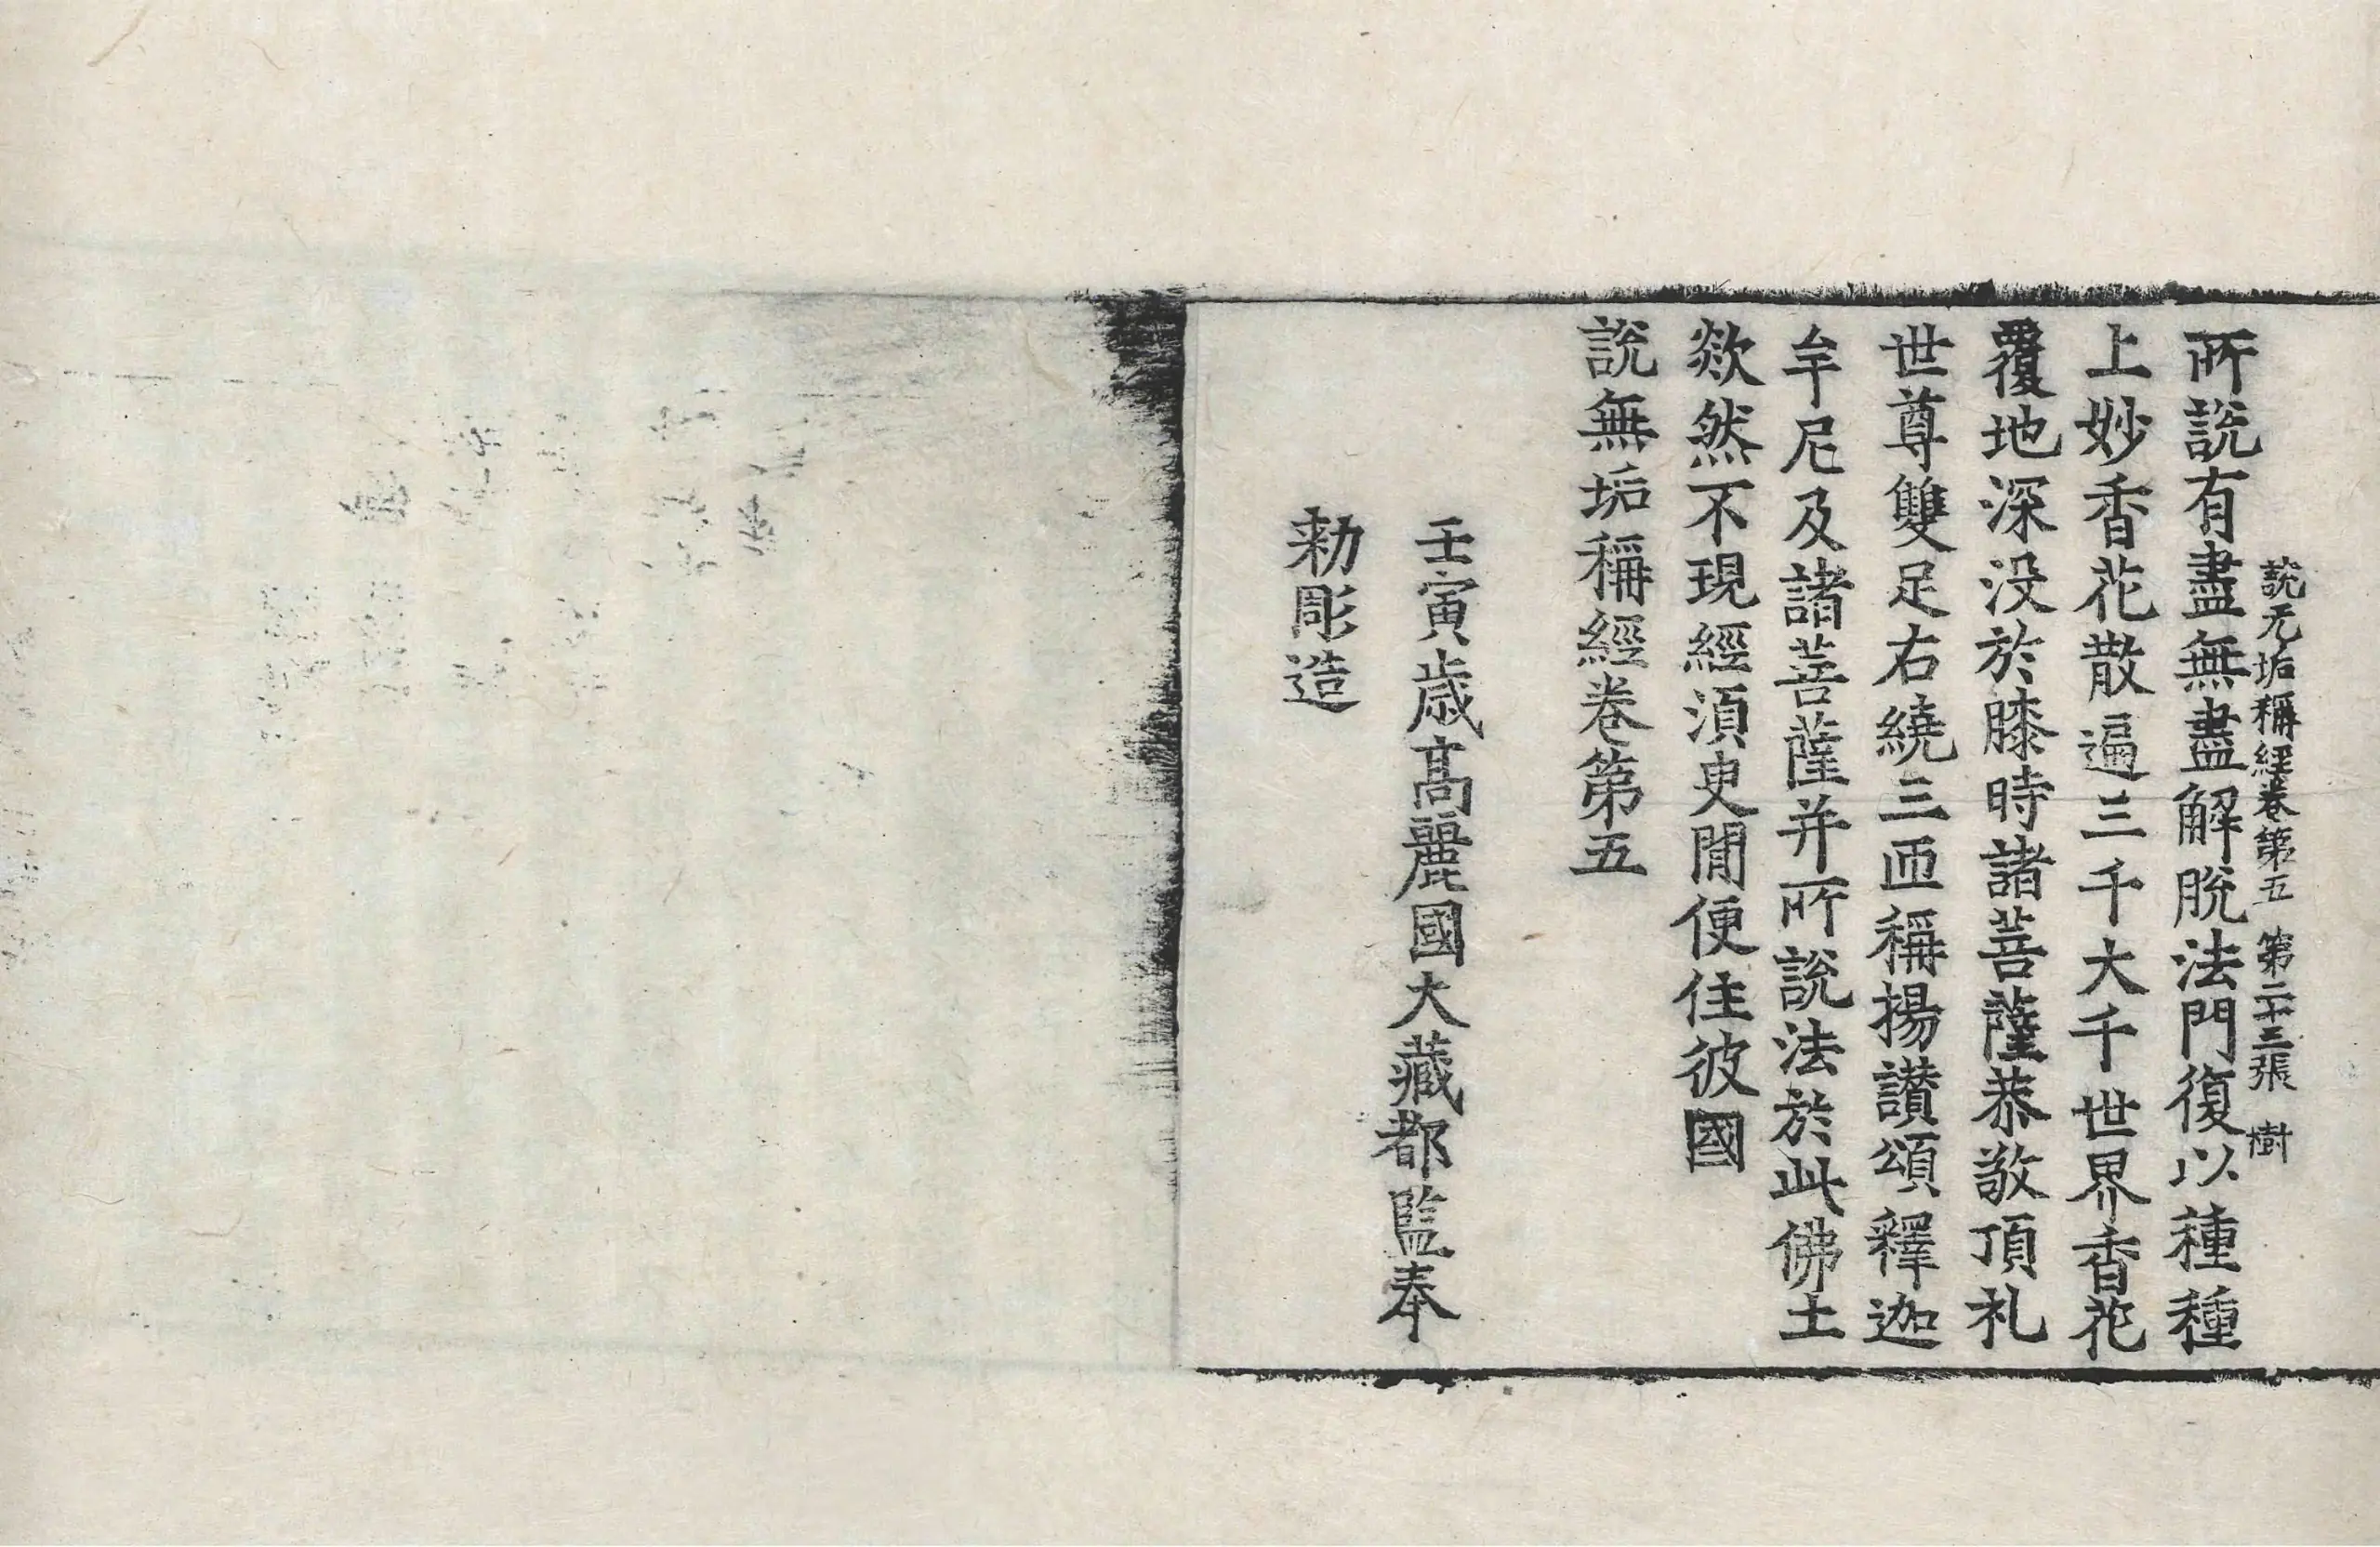 說无垢稱經卷第五 第二十三張 樹
所說有盡無盡解脫法門復以種種
上妙香花散遍三千大千世界香花
覆地深没於膝時諸菩薩恭敬頂礼
世尊雙足右繞三匝稱揚讃頌釋迦
牟尼及諸菩薩并所說法於此佛土
欻然不現經湏臾閒便住彼國
說無垢稱經卷第五
壬寅歳高麗國大藏都監奉
勑彫造